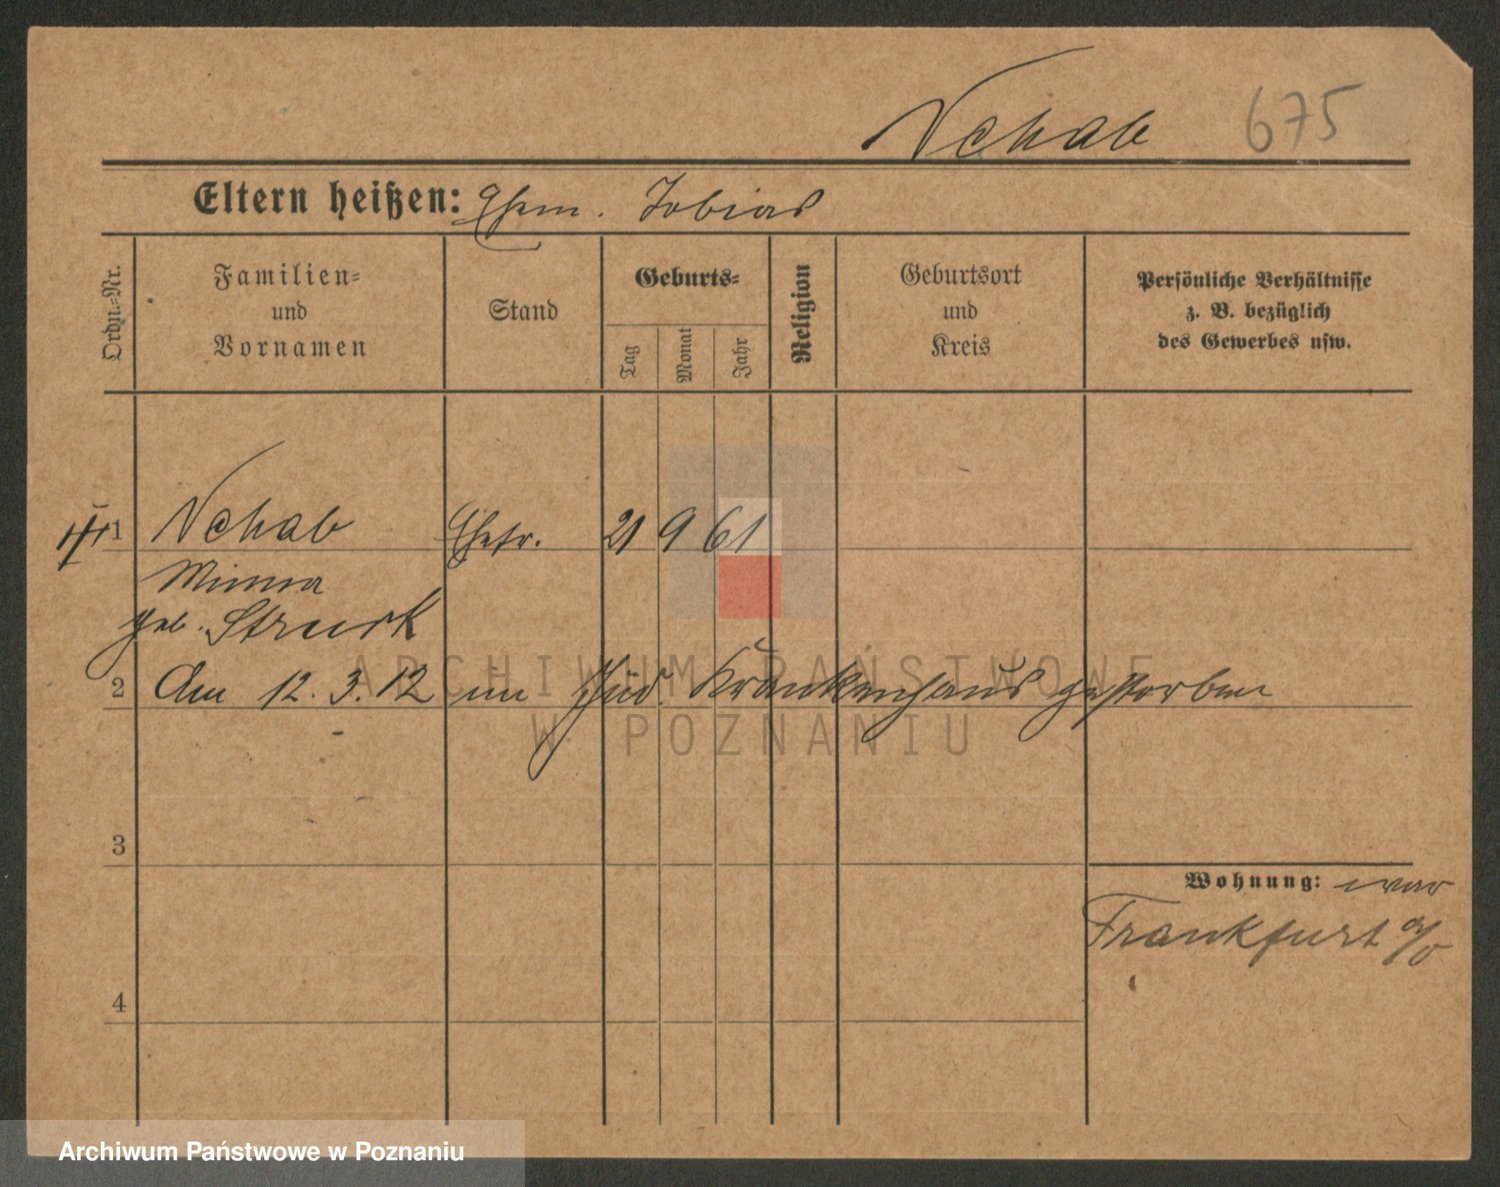 Nehab 675
Eltern heißen: Ehem. Tobias
Ordn.-Nr.
Familien- und Vornamen
Stand
Geburts-
Tag Monat Jahr
Religion
Geburtsort und Kreis
Persönliche Verhältnisse
z. B. bezüglich
des Gewerbes usw.
1 Nehab Ehefr. 21 9 61
Minna
geb. Struck
2 Am 12. 3. 12 im Jüd. Krankenhaus gestorben
3
Wohnung: war
Frankfurt a/O
4
ARCHIWUM PAŃSTWOWE
W POZNANIU
Archiwum Państwowe w Poznaniu